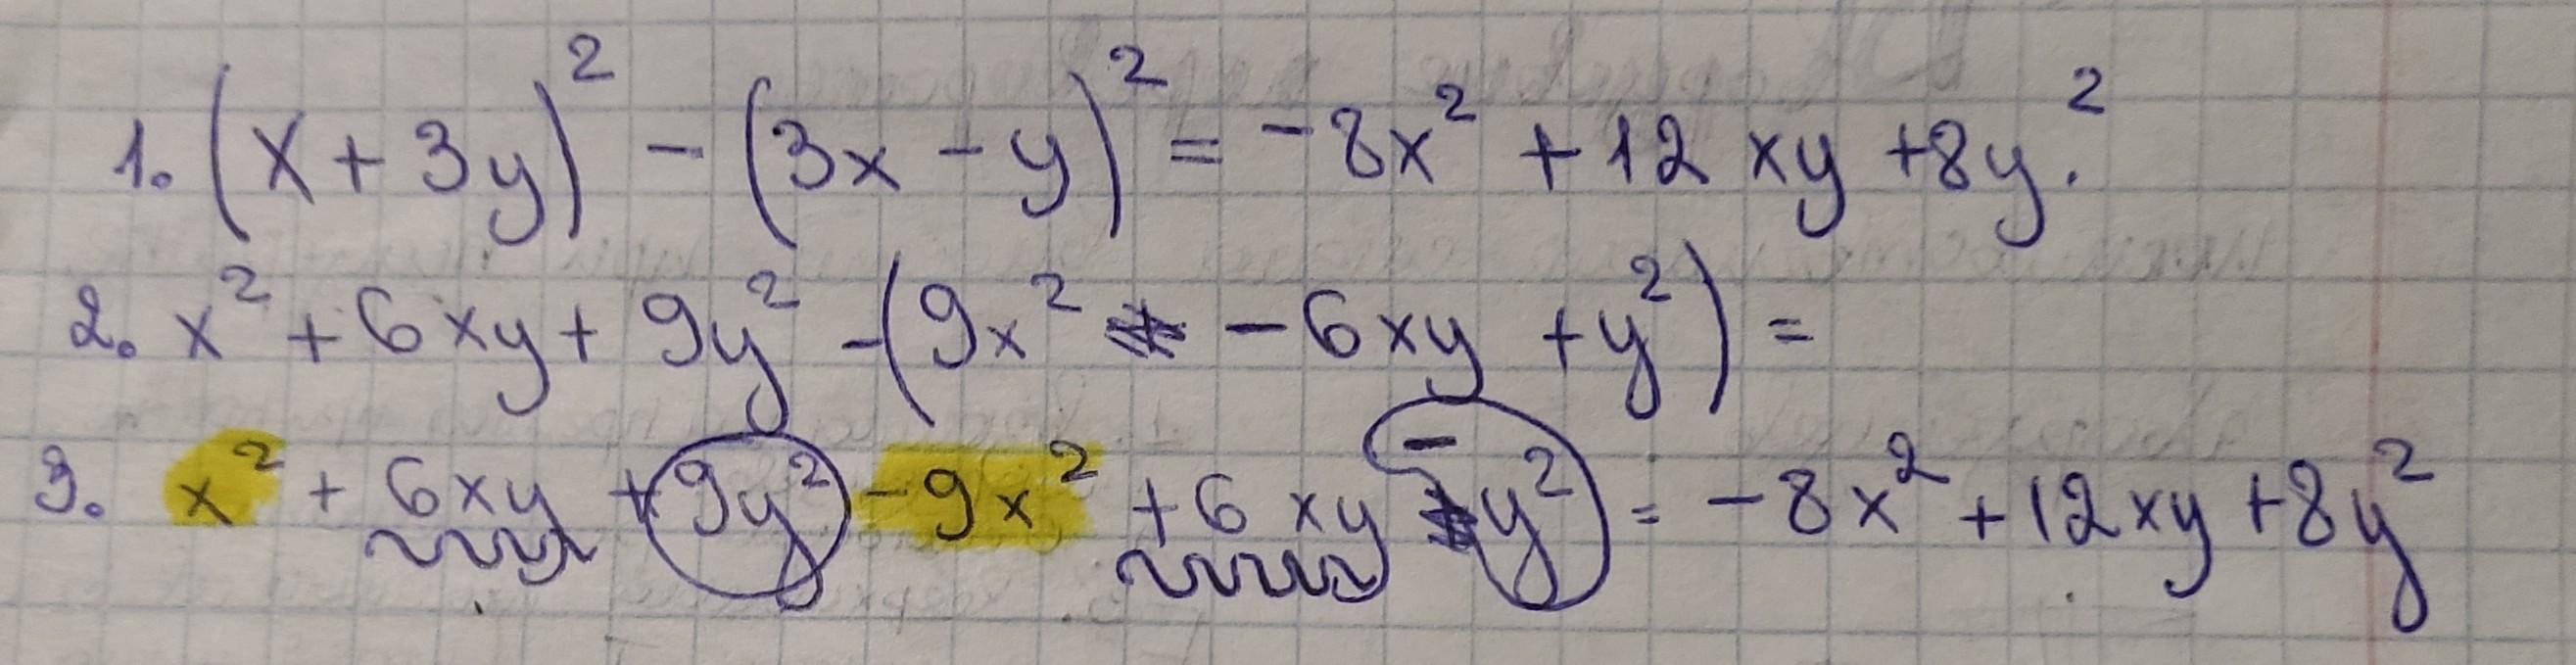 1. (x + 3y)² - (3x - y)² = -8x² + 12xy + 8y².
2. x² + 6xy + 9y² - (9x² - 6xy + y²) =
3. x² + 6xy + 9y² - 9x² + 6xy - y² = -8x² + 12xy + 8y²